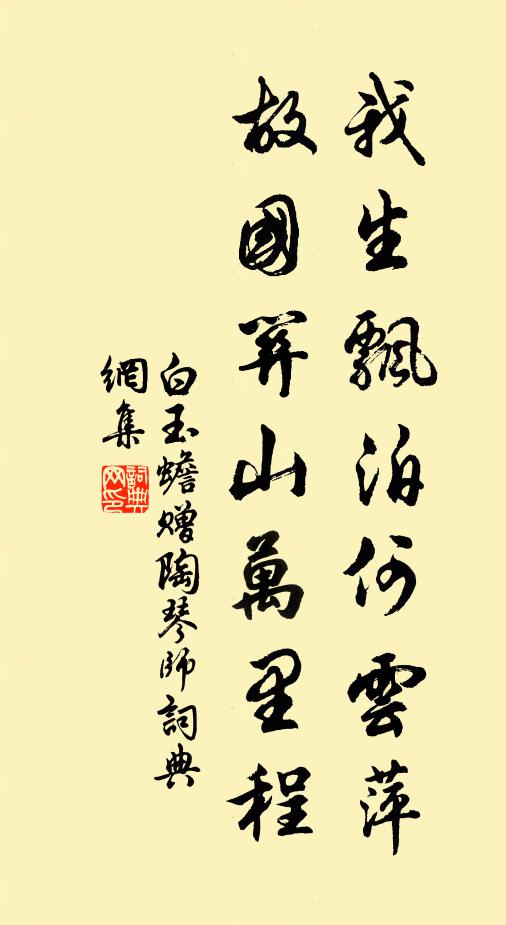 我生飄泊何雲萍
故國關山萬里程
白玉蟾贈陶琴師詞典
網集
詞典網印